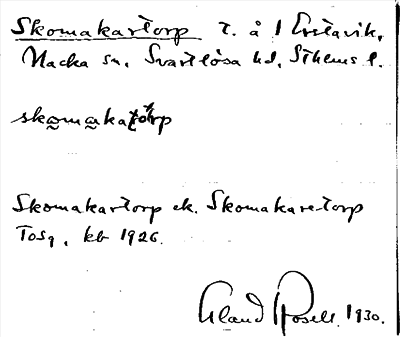 Skomakartorp t. å 1 Erstavik,
Nacka sn, Svartlösa hd, Sthlms l.
skomakatorp
Skomakartorp ek. Skomakaretorp
Tosq, kb 1926.
Erland Rosell 1930.